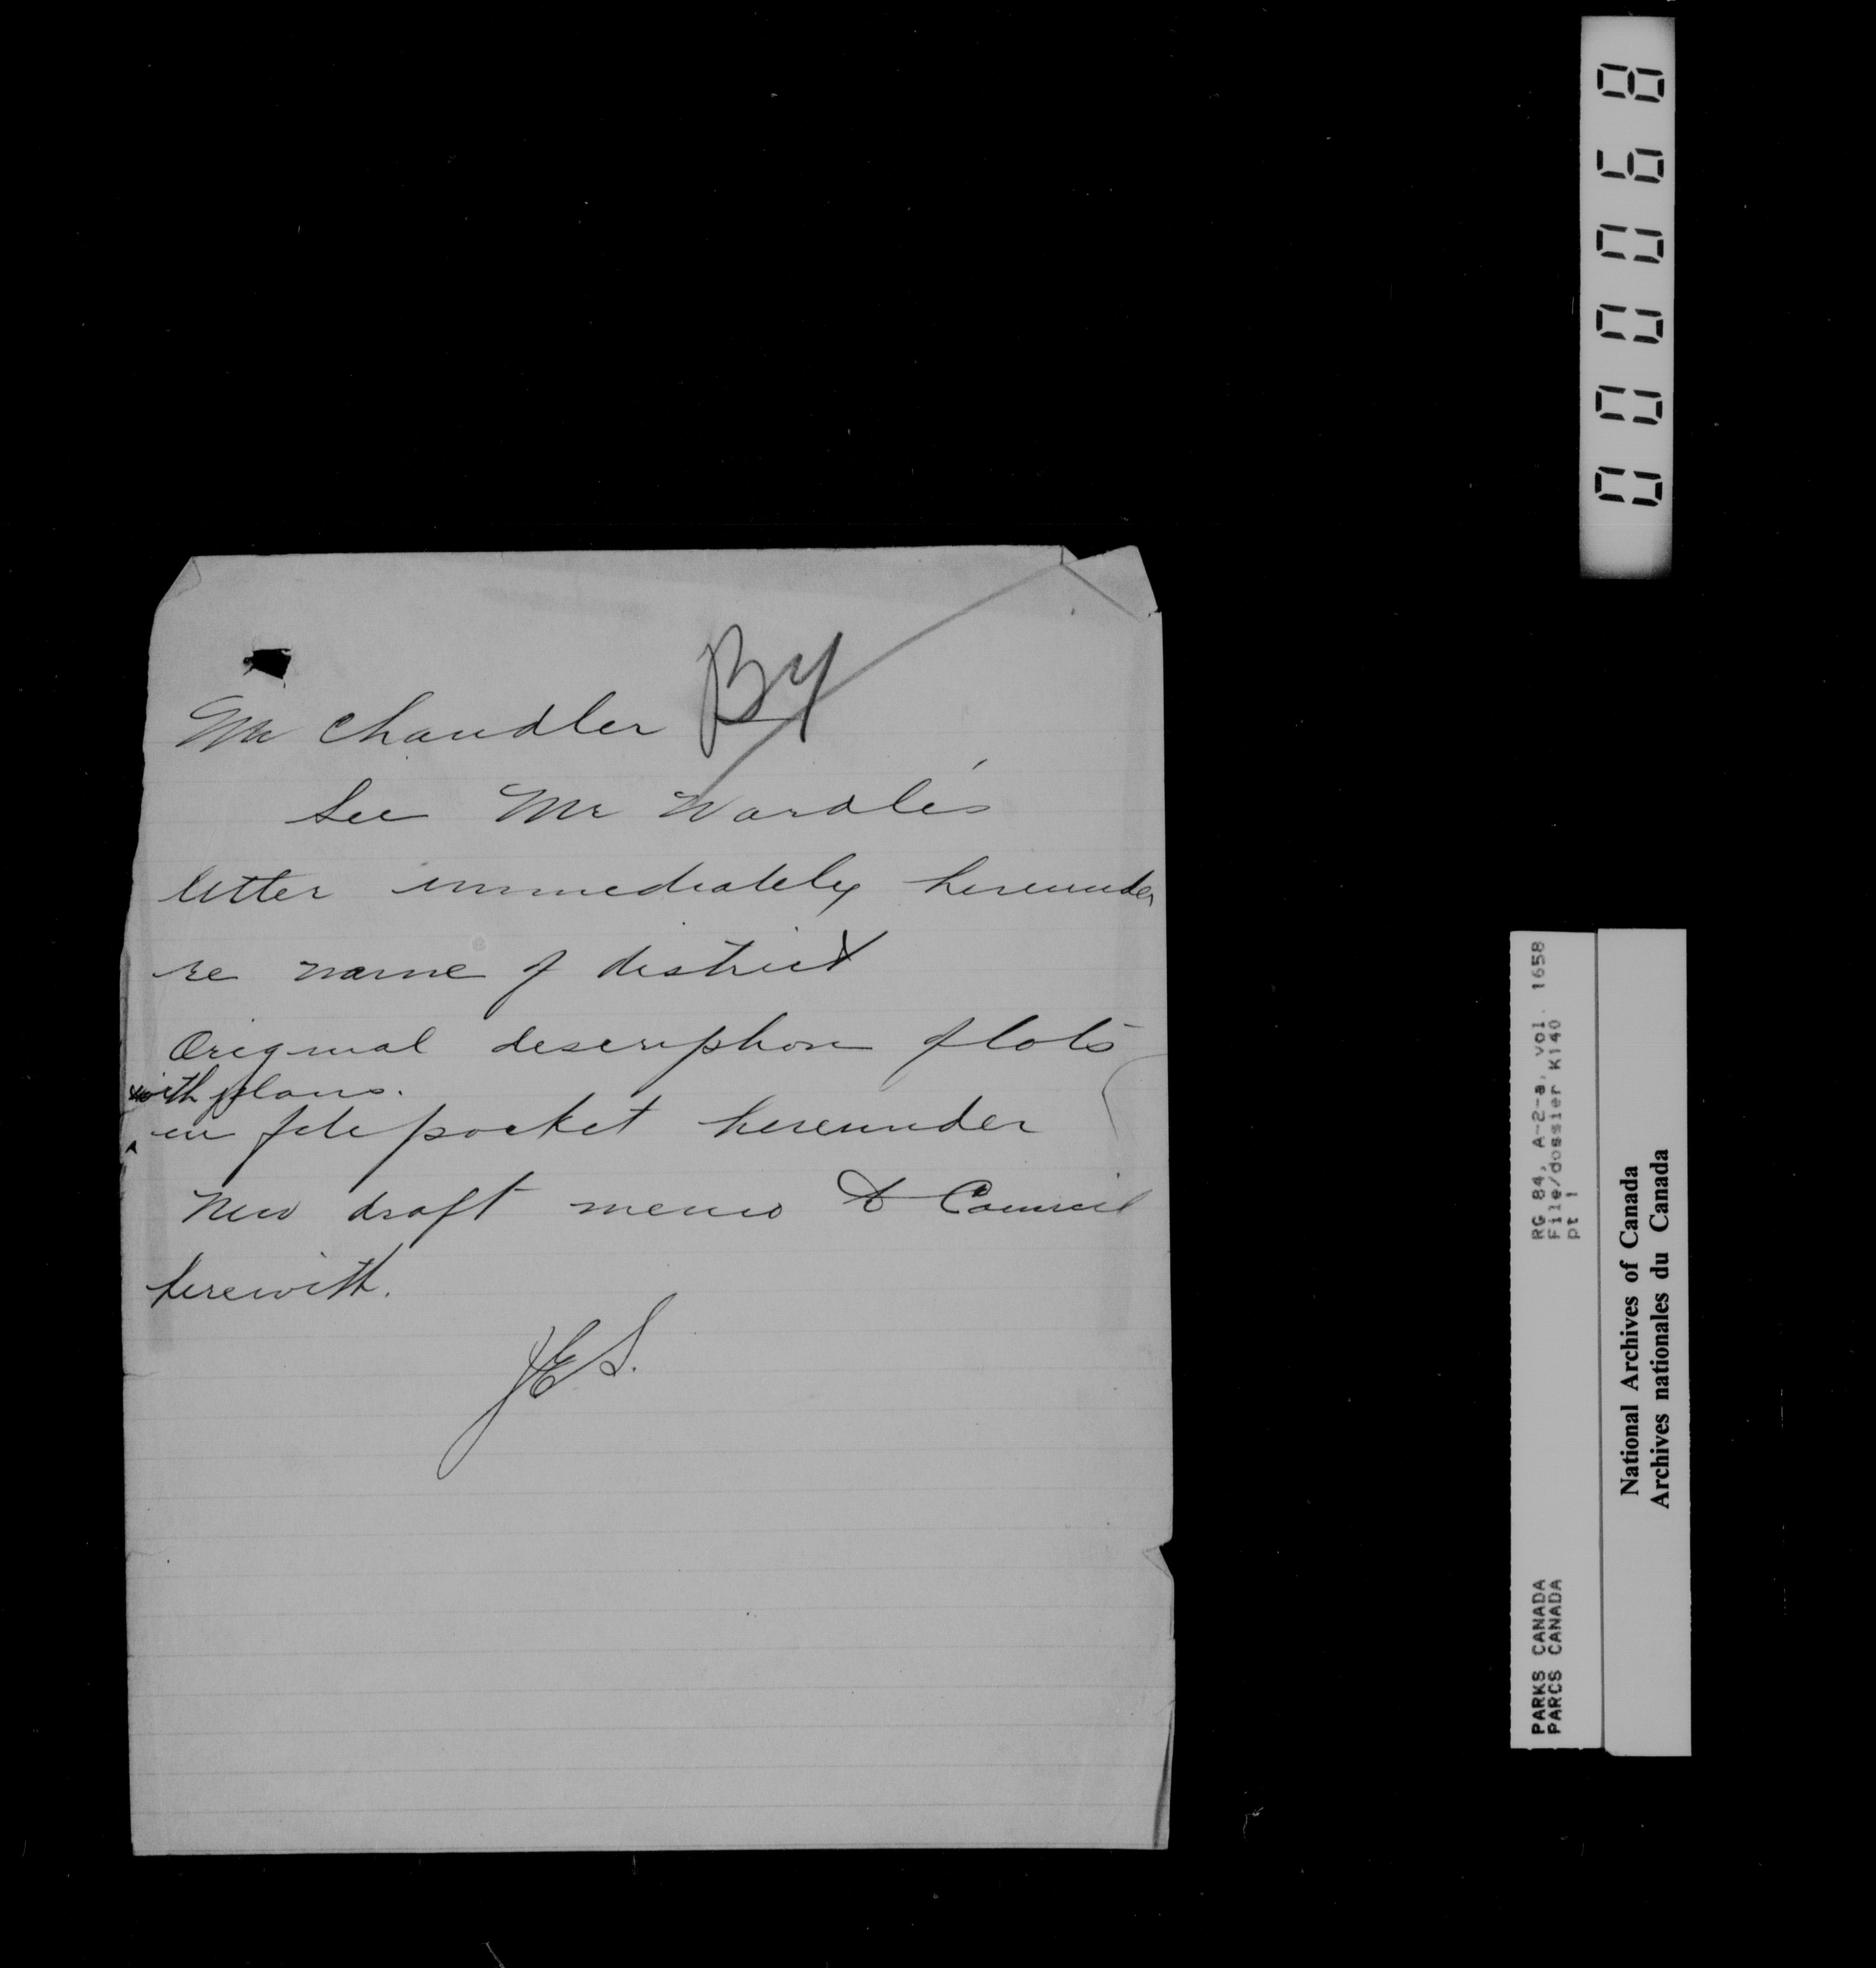 By
Mr Chandler
See Mr Wardle's
letter immediately hereunder
re name of district
Original description of lots
with plans.
in file pocket hereunder
New draft memo to Council
herewith.
JES.
000068
RG 84, A-2-a, vol. 1658
File/dossier K140
pt 1
PARKS CANADA
PARCS CANADA
National Archives of Canada
Archives nationales du Canada